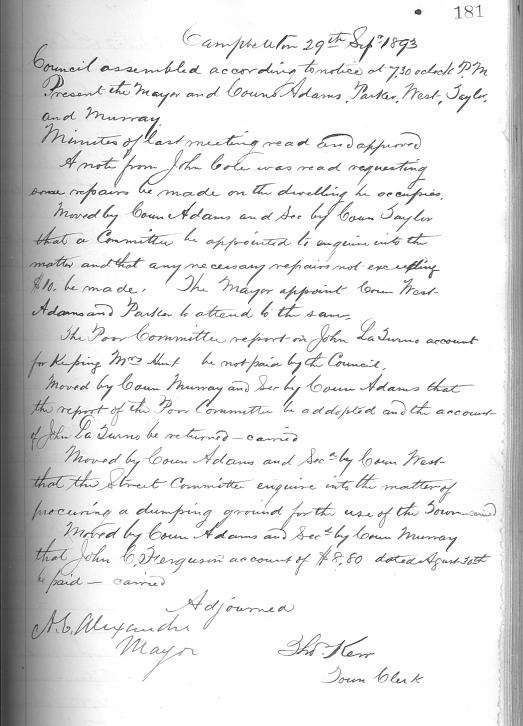 181
Campbellton 29th Sepr 1893
Council assembled according to notice at 7.30 oclock P.M
Present the Mayor and Couns Adams, Parker, West, Taylor,
and Murray.
Minutes of last meeting read and approved
A note from John Cole was read requesting
some repairs be made on the dwelling he occupies.
Moved by Coun Adams and Sec by Coun Taylor
that a Committee be appointed to enquire into the
matter and that any necessary repairs not exceeding
$10. be made. The Mayor appoint Coun West
Adams and Parker to attend to the same
The Poor Committee report on John LaTurno account
for Keeping Mrs Hunt be not paid by the Council.
Moved by Coun Murray and Sec by Coun Adams that
the report of the Poor Committee be addopted and the account
of John LaTurno be returned – carried
Moved by Coun Adams and Secd by Coun West
that the Street Committee enquire into the matter of
procuring a dumping ground for the use of the Town – carried
Moved by Coun Adams and Secd by Coun Murray
that John C. Ferguson account of $8,80 dated Agust 30th
be paid – carried
Adjourned
Alexander
Mayor
Thos. Kerr
Town Clerk